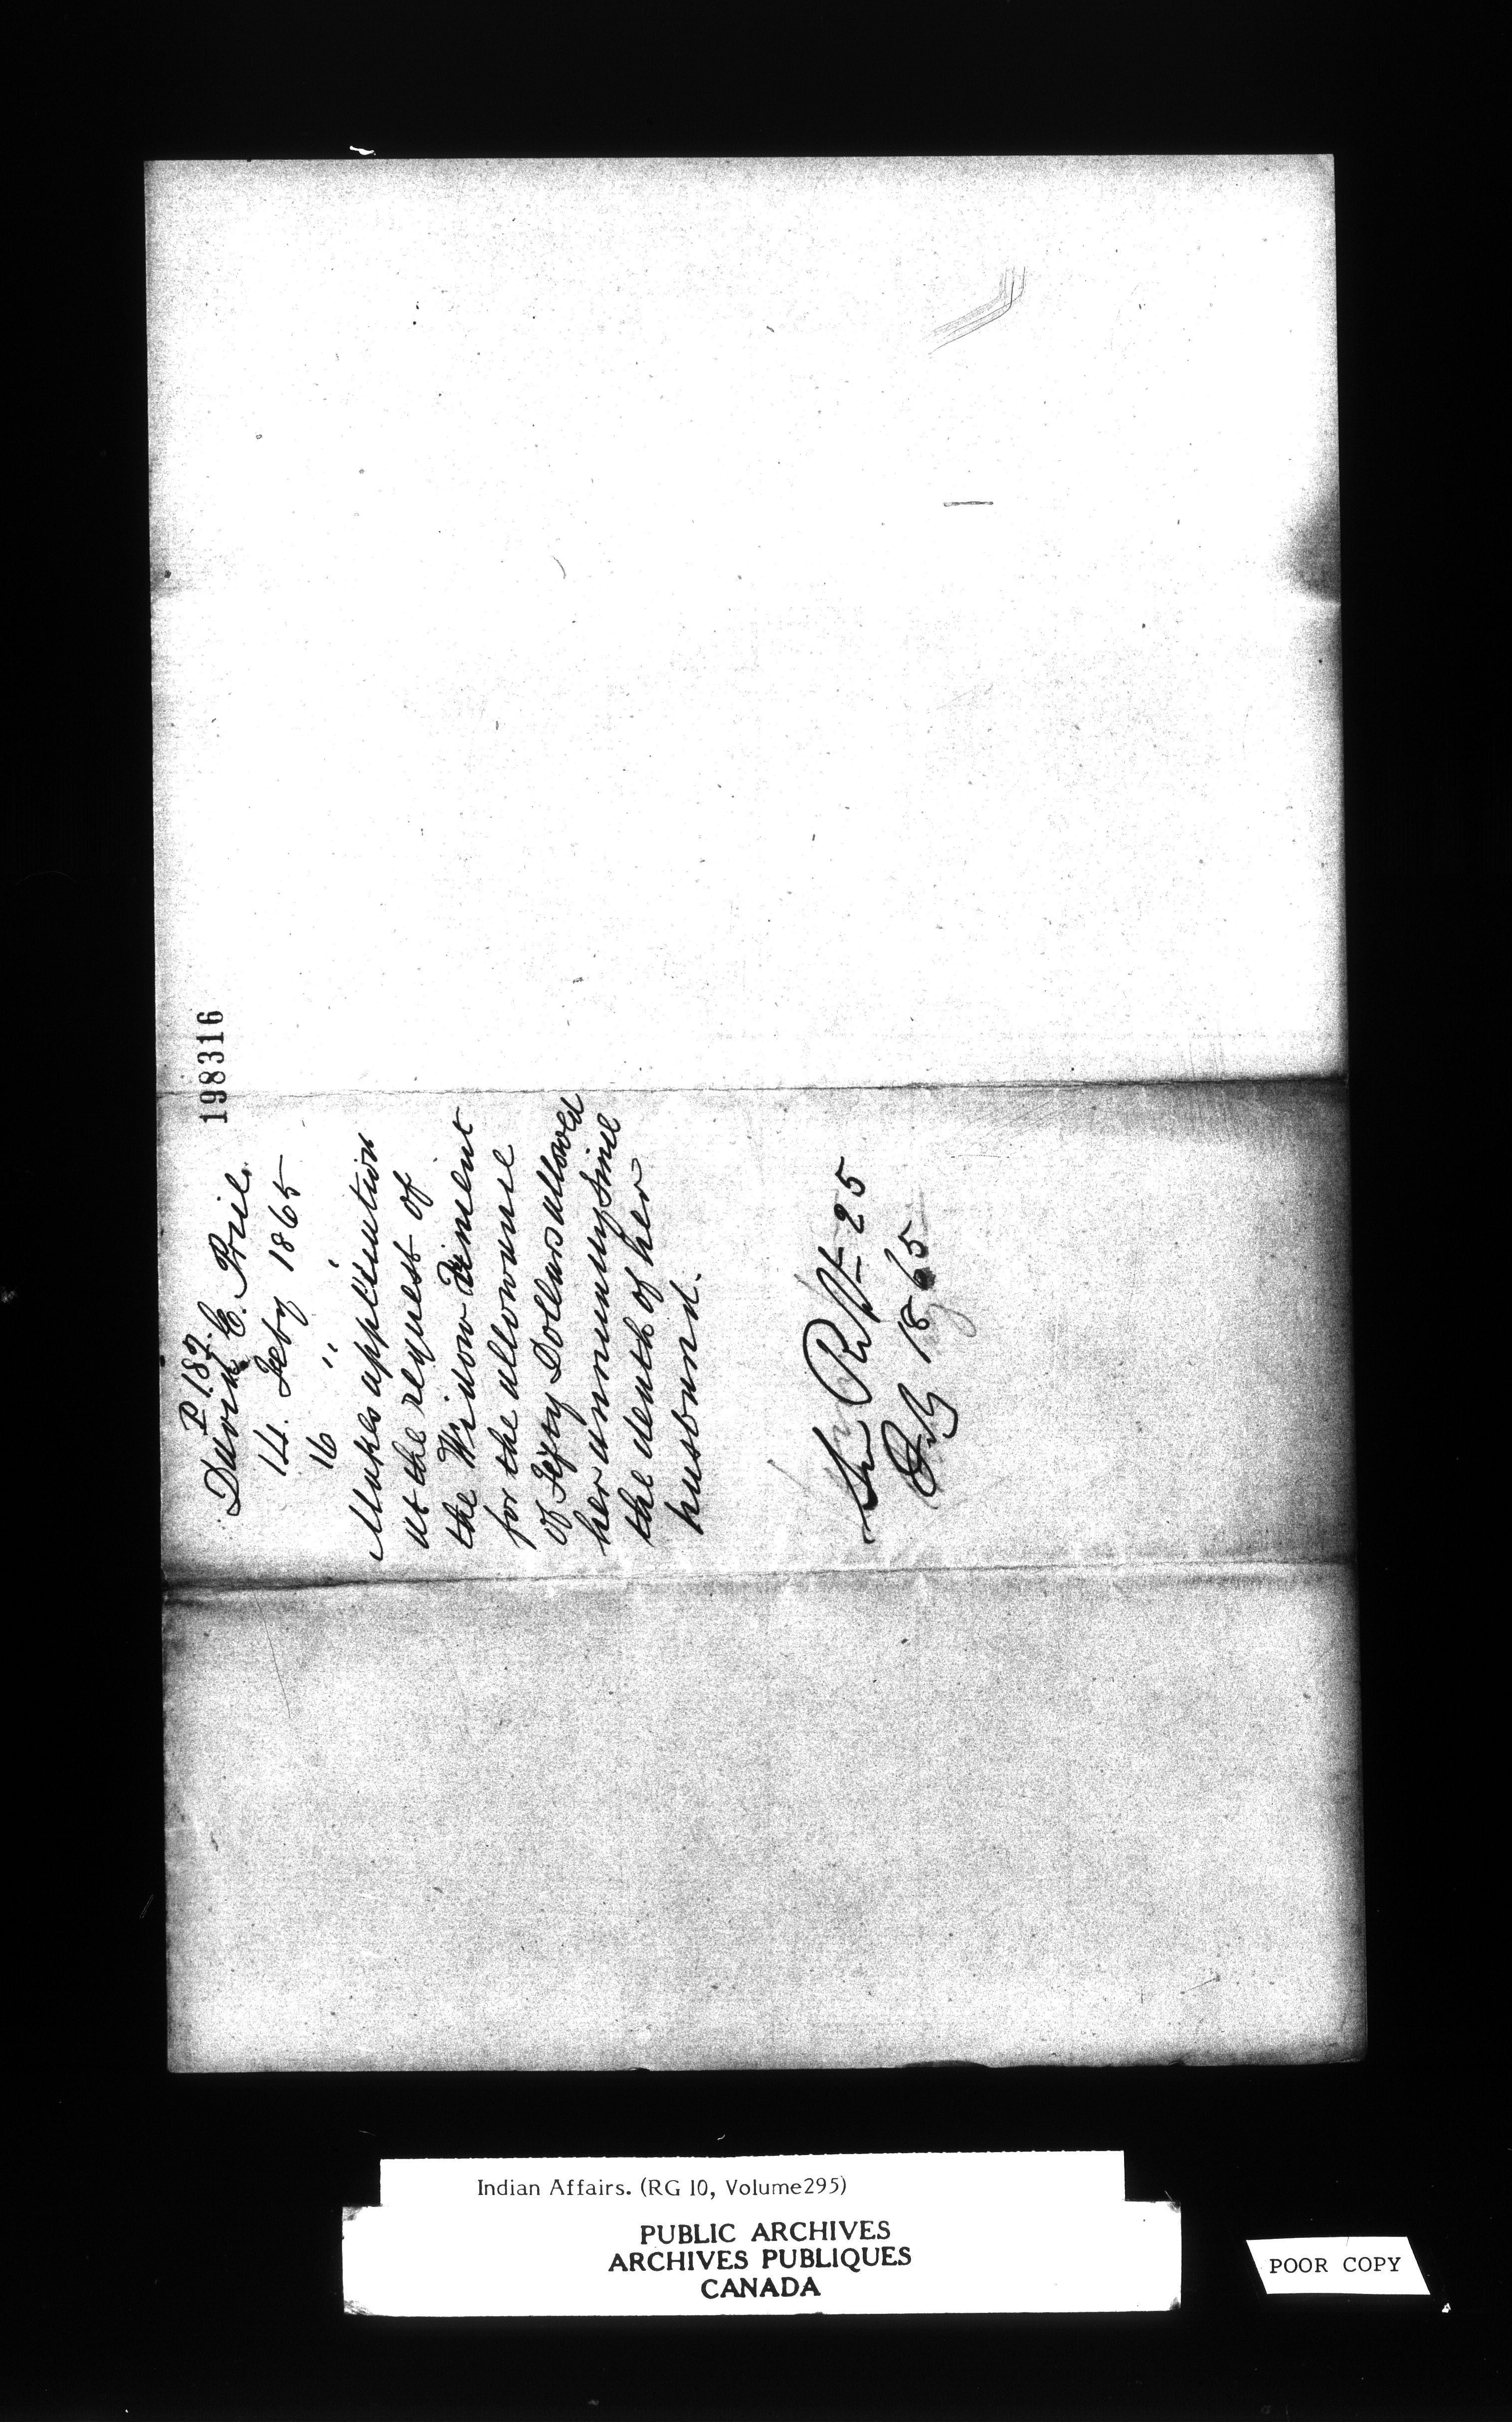 198316
P. 187.
David C. Price.
14. Feby 1865
16 " "
Makes application
at the request of
the Widow Diment
for the allowance
of Fifty Dollars allowed
her annually since
the death of her
husband.
Rept 25
Feby 1865
Indian Affairs. (RG 10, Volume295)
PUBLIC ARCHIVES
ARCHIVES PUBLIQUES
CANADA
POOR COPY